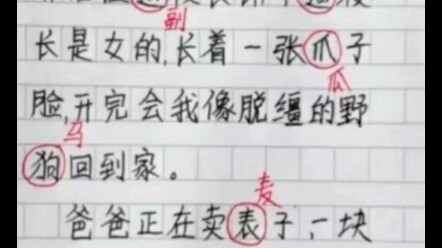 副
长是女的,长着一张爪子
瓜
脸,开完会我像脱缰的野
马
狗回到家。
麦
爸爸正在卖表子,一块